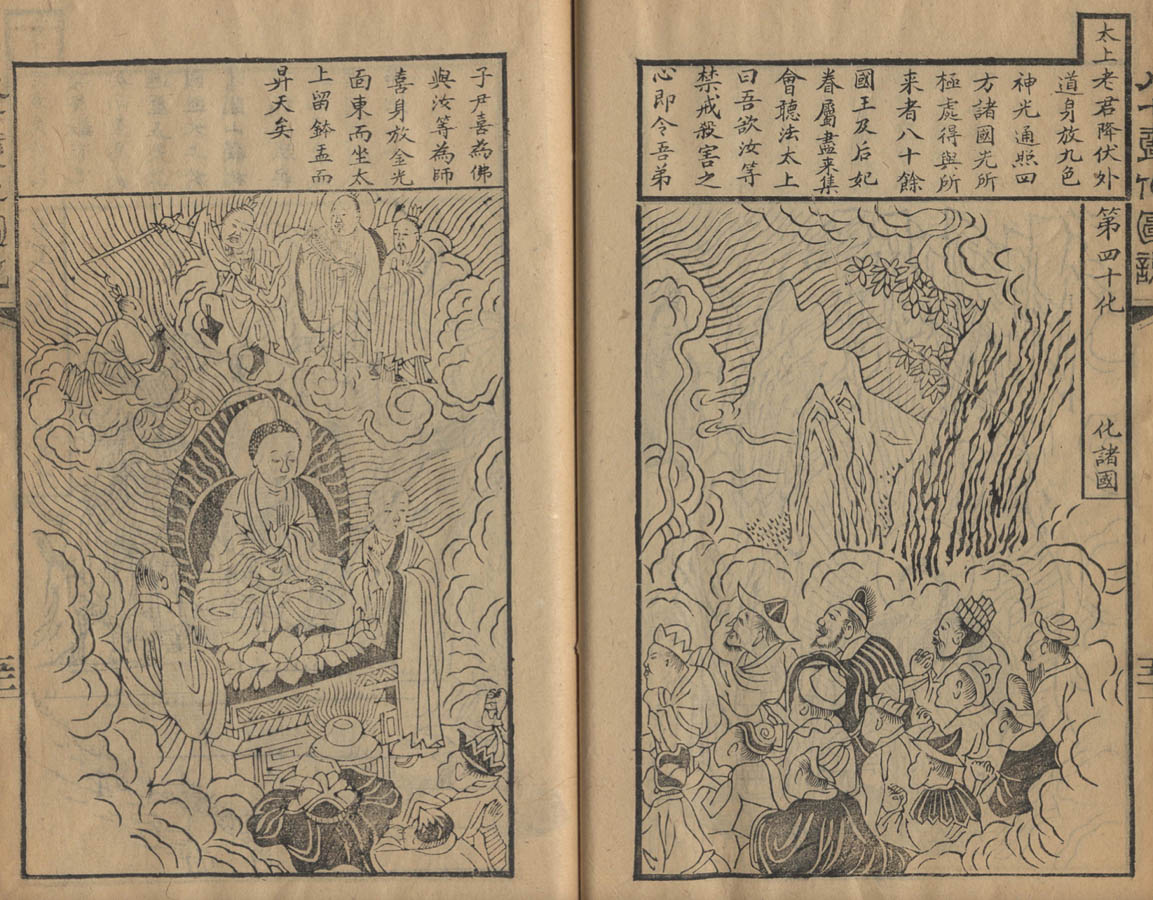 太上老君降伏外
道身放九色
神光通照四
方諸國光所
極處得與所
來者八十餘
國王及后妃
眷屬盡来集
會聽法太上
曰吾欲汝等
禁戒殺害之
心即令吾弟
第四十化
化諸國
子尹喜為佛
與汝等為師
喜身放金光
面東而坐太
上留鉢盂而
昇天矣